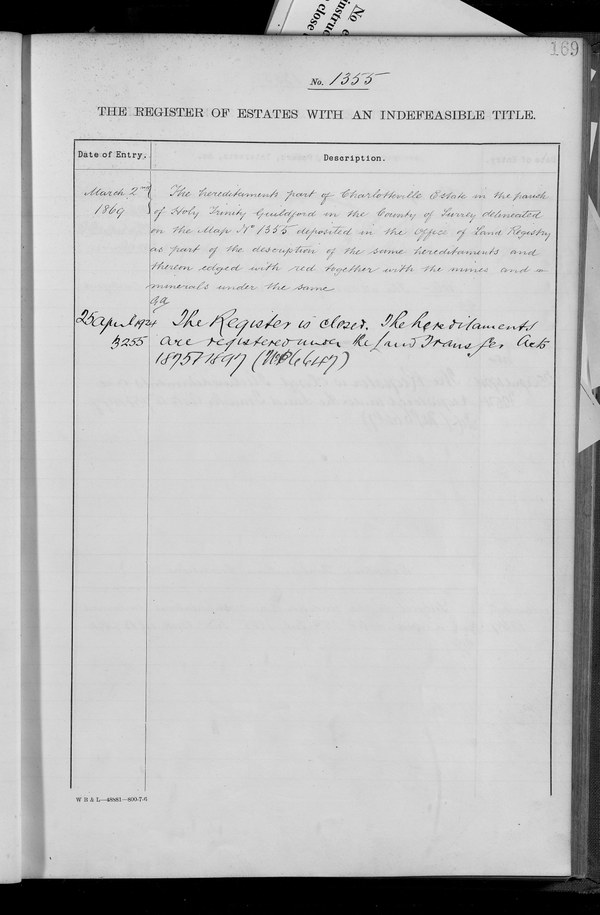 No.
instruc
close
169
No. 1355
THE REGISTER OF ESTATES WITH AN INDEFEASIBLE TITLE.
Date of Entry. Description.
March 2nd The hereditaments part of Charlotteville Estate in the parish
1869 of Holy Trinity Guildford in the County of Surrey delineated
on the Map No 1355 deposited in the Office of Land Registry
as part of the description of the same hereditaments and
thereon edged with red together with the mines and
minerals under the same
25 April 1924 The Register is closed. The hereditaments
are registered under the Land Transfer Acts
1875 & 1897
W B & L—48881—800-7-6